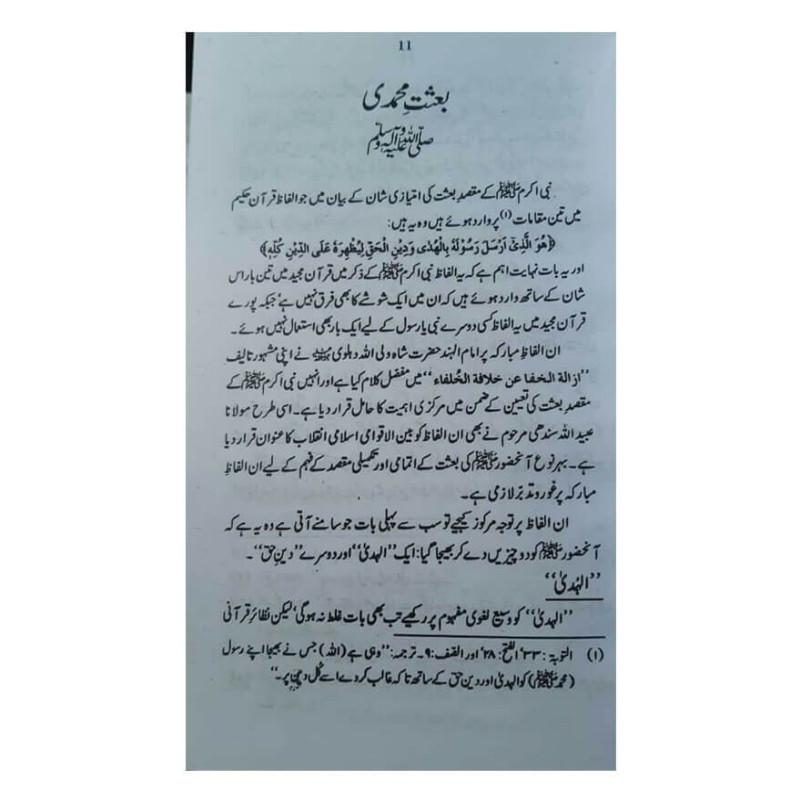 11
بعثتِ محمدی
صلی اللہ علیہ وآلہ وسلم
نبی اکرم ﷺ کے مقصدِ بعثت کی امتیازی شان کے بیان میں جو الفاظ قرآن حکیم
میں تین مقامات (۱) پر وارد ہوئے ہیں وہ یہ ہیں:
﴿هُوَ الَّذِیْ اَرْسَلَ رَسُوْلَهٗ بِالْهُدٰی وَدِیْنِ الْحَقِّ لِیُظْهِرَهٗ عَلَی الدِّیْنِ كُلِّهٖ﴾
اور یہ بات نہایت اہم ہے کہ یہ الفاظ نبی اکرم ﷺ کے ذکر میں قرآن مجید میں تین بار اس
شان کے ساتھ وارد ہوئے ہیں کہ ان میں ایک شوشے کا بھی فرق نہیں ہے' جبکہ پورے
قرآن مجید میں یہ الفاظ کسی دوسرے نبی یا رسول کے لیے ایک بار بھی استعمال نہیں ہوئے۔
ان الفاظِ مبارکہ پر امام الہند حضرت شاہ ولی اللہ دہلوی رحمہ اللہ نے اپنی مشہور تالیف
''ازالة الخفا عن خلافة الخُلفاء'' میں مفصل کلام کیا ہے اور انہیں نبی اکرم ﷺ کے
مقصدِ بعثت کی تعیین کے ضمن میں مرکزی اہمیت کا حامل قرار دیا ہے۔ اسی طرح مولانا
عبید اللہ سندھی مرحوم نے بھی ان الفاظ کو بین الاقوامی اسلامی انقلاب کا عنوان قرار دیا
ہے۔ بہرنوع آنحضور ﷺ کی بعثت کے اتمامی اور تکمیلی مقصد کے فہم کے لیے ان الفاظِ
مبارکہ پر غور و تدبر لازمی ہے۔
ان الفاظ پر توجہ مرکوز کیجیے تو سب سے پہلی بات جو سامنے آتی ہے وہ یہ ہے کہ
آنحضور ﷺ کو دو چیزیں دے کر بھیجا گیا: ایک ''الہدیٰ'' اور دوسرے ''دینِ حق''۔
''الہُدیٰ''
''الہدیٰ'' کو وسیع لغوی مفہوم پر رکھیے تب بھی بات غلط نہ ہوگی' لیکن نظائرِ قرآنی
(۱) التوبۃ: ۳۳' الفتح: ۲۸' اور الصّف: ۹۔ ترجمہ: ''وہی ہے (اللہ) جس نے بھیجا اپنے رسول
(محمد ﷺ) کو الہدیٰ اور دین حق کے ساتھ تاکہ غالب کر دے اسے کُل دین پر۔''